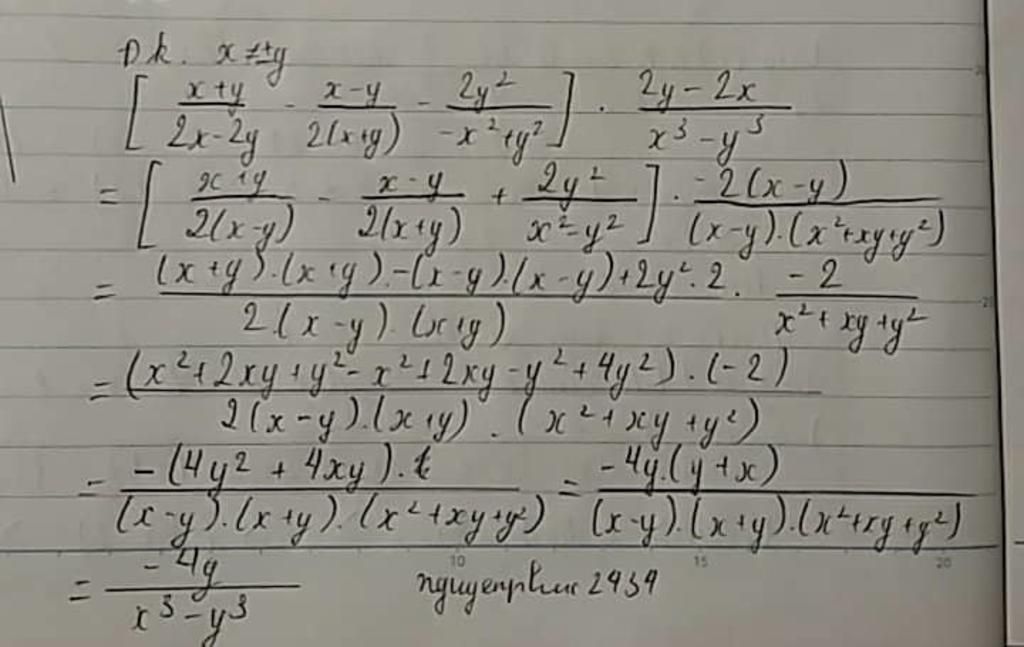 Đk. x ≠ ±y
[ (x+y)/(2x-2y) - (x-y)/(2(x+y)) - 2y²/(-x²+y²) ] . (2y-2x)/(x³-y³)
= [ (x+y)/(2(x-y)) - (x-y)/(2(x+y)) + 2y²/(x²-y²) ] . (-2(x-y))/((x-y).(x²+xy+y²))
= ((x+y).(x+y)-(x-y).(x-y)+2y².2)/(2.(x-y).(x+y)) . (-2)/(x²+xy+y²)
= ((x²+2xy+y²-x²+2xy-y²+4y²).(-2))/(2(x-y).(x+y).(x²+xy+y²))
= (-(4y²+4xy).)/((x-y).(x+y).(x²+xy+y²)) = (-4y.(y+x))/((x-y).(x+y).(x²+xy+y²))
10 15 20
= (-4y)/(x³-y³) nguyenphuc2434